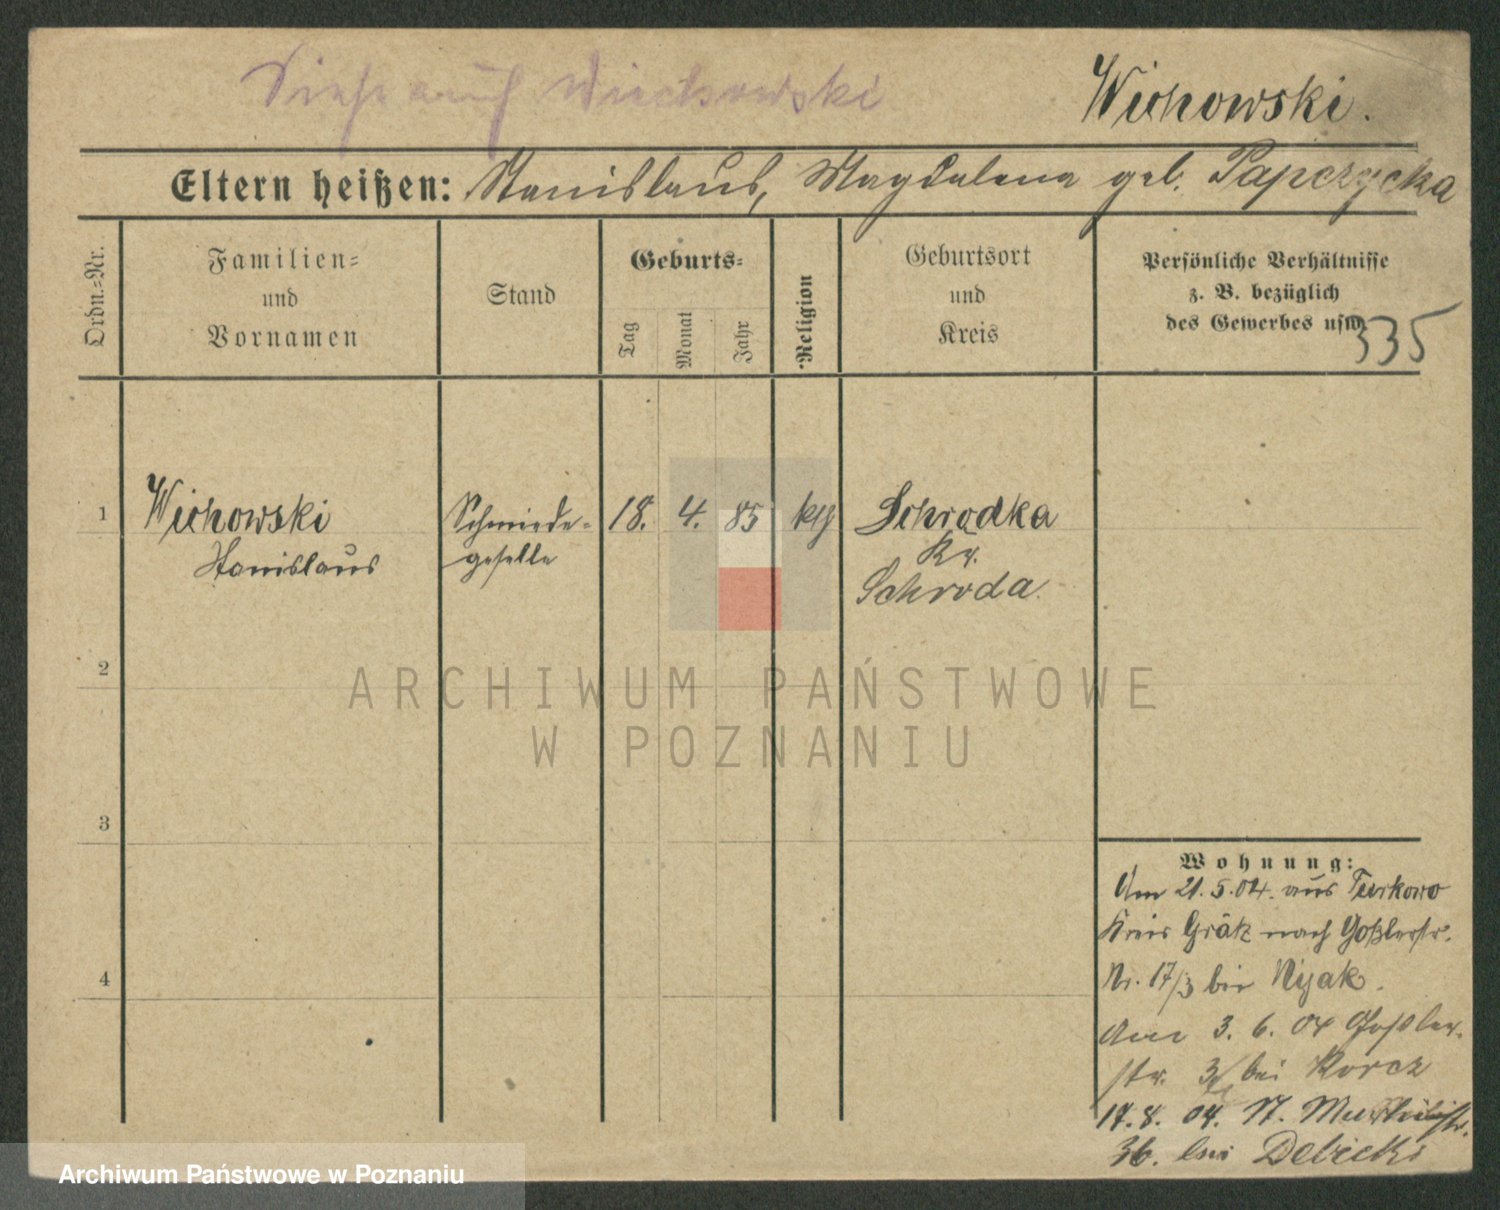 Siehe auch Wiechowski
Wichowski.
Eltern heißen: Stanislaus, Magdalena geb. Papczycka
Ordn.-Nr.
Familien-
und
Vornamen
Stand
Geburts-
Tag
Monat
Jahr
Religion
Geburtsort
und
Kreis
Persönliche Verhältnisse
z. B. bezüglich
des Gewerbes usw.
335
1 Wichowski Schmiede- 18. 4. 85 kth Schrodka
Stanislaus geselle Kr.
Schroda.
2
3
4
ARCHIWUM PAŃSTWOWE
W POZNANIU
Wohnung:
Am 21.5.04. aus Turkowo
Kreis Grätz nach Goßlerstr.
Nr. 17/3 bei Nijak.
Am 3. 6. 04 Goßler-
str. bei Korcz
17.8. 04. N.
36. bei Debicki
Archiwum Państwowe w Poznaniu